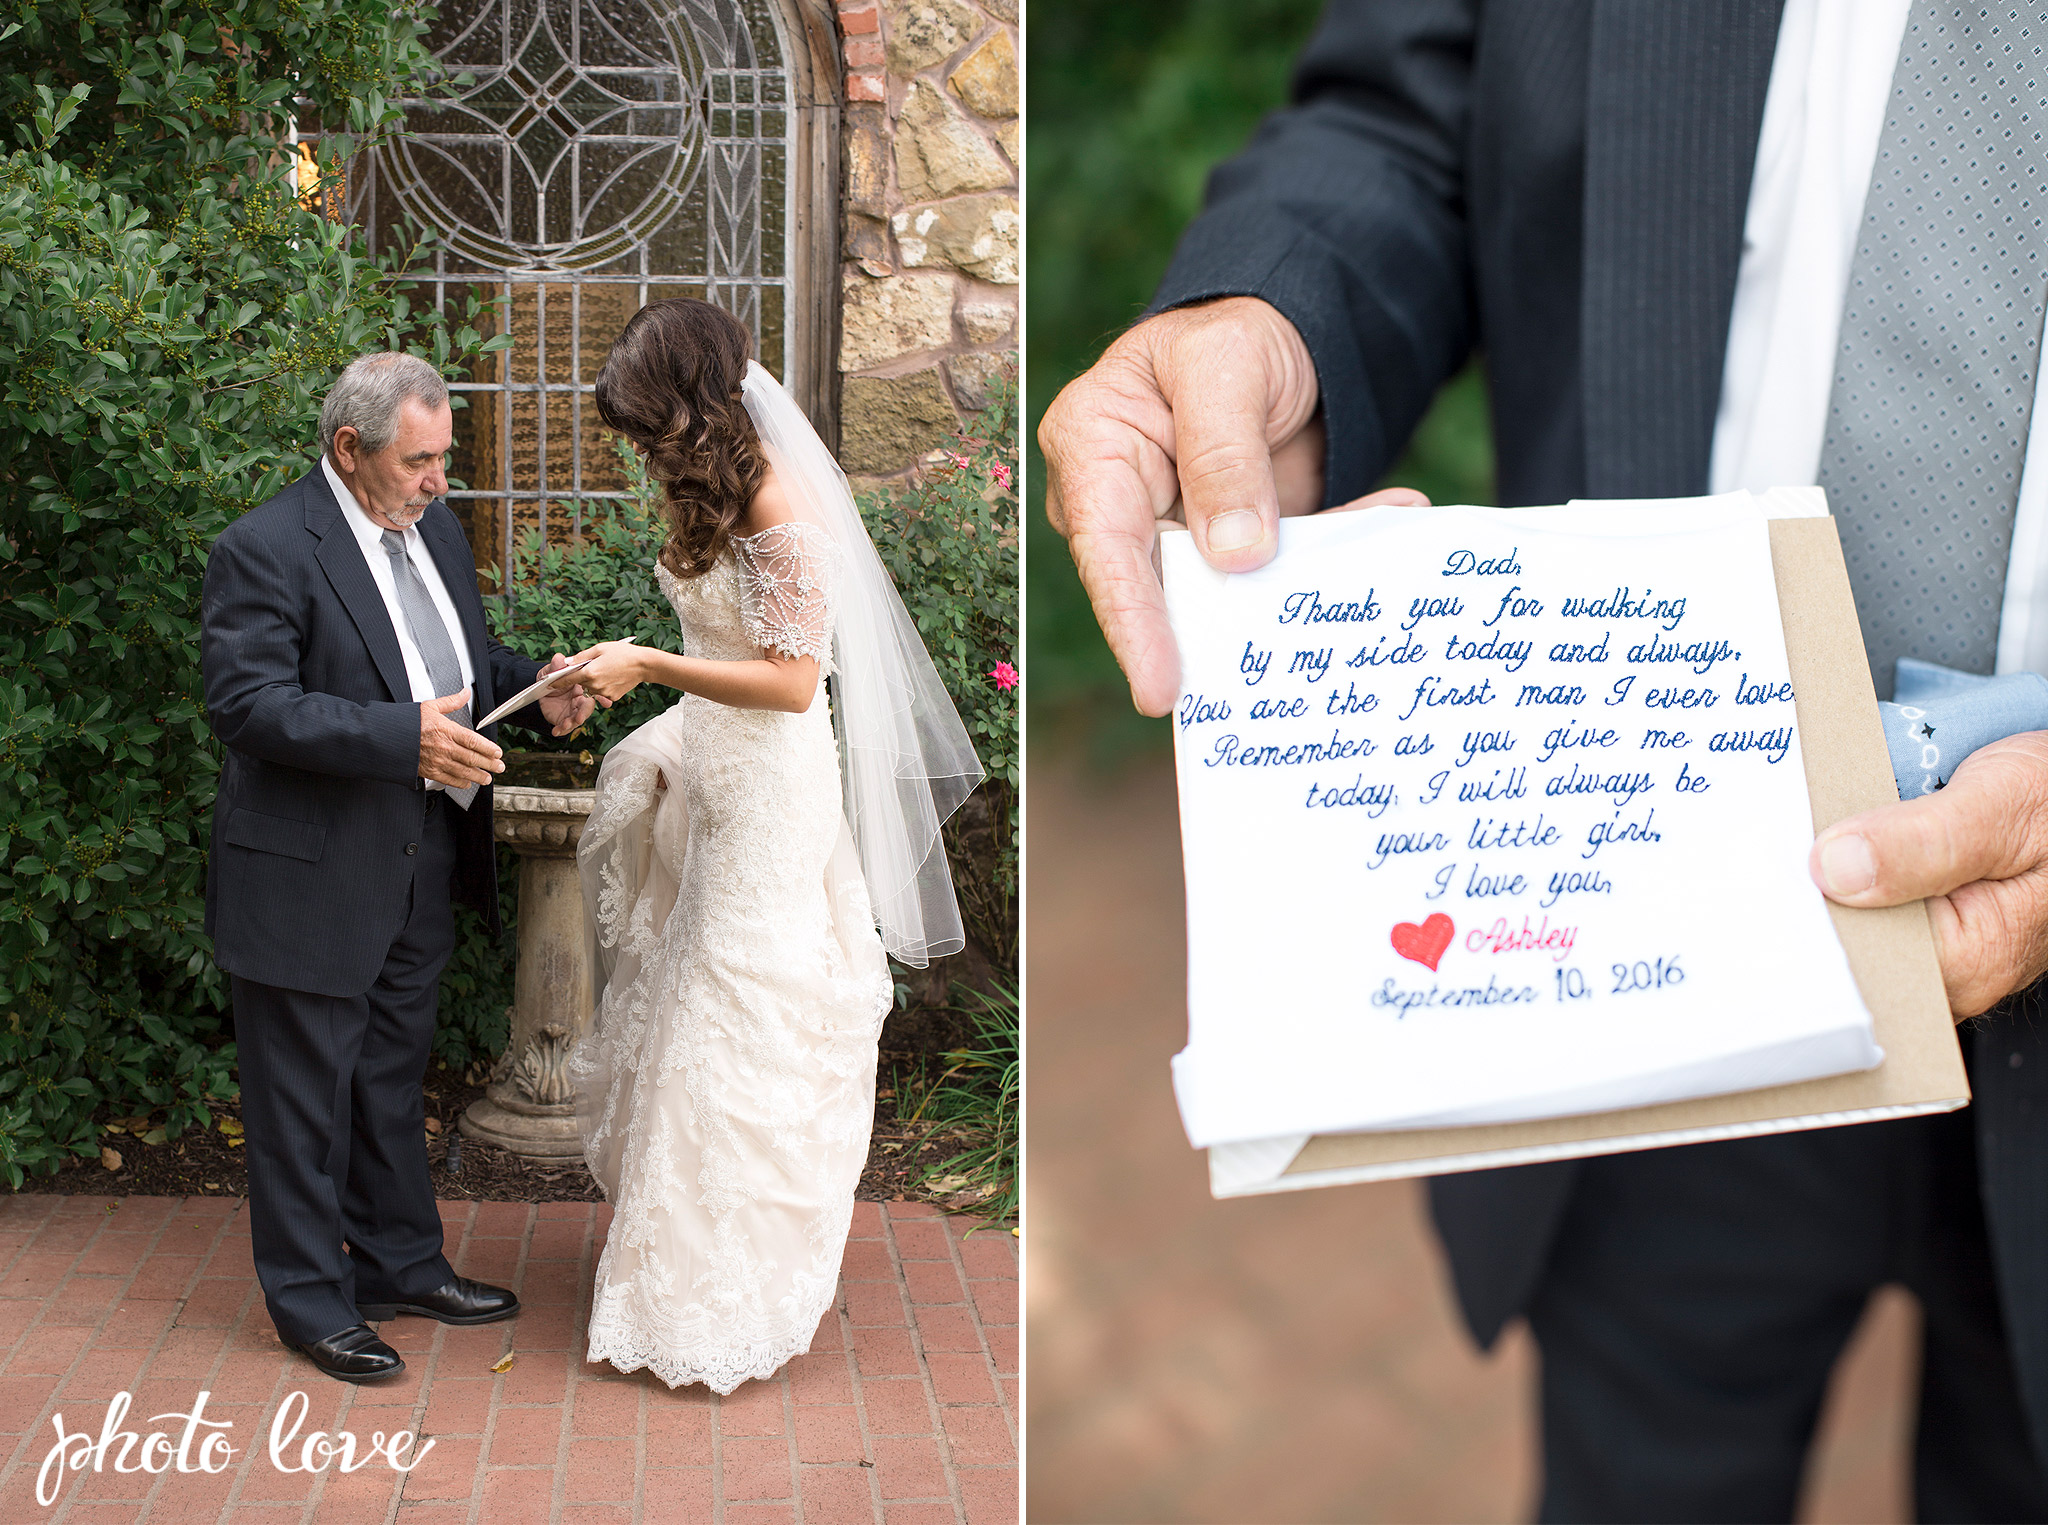 Dad,
Thank you for walking
by my side today and always.
You are the first man I ever love
Remember as you give me away
today, I will always be
your little girl.
I love you,
Ashley
September 10, 2016
photo love